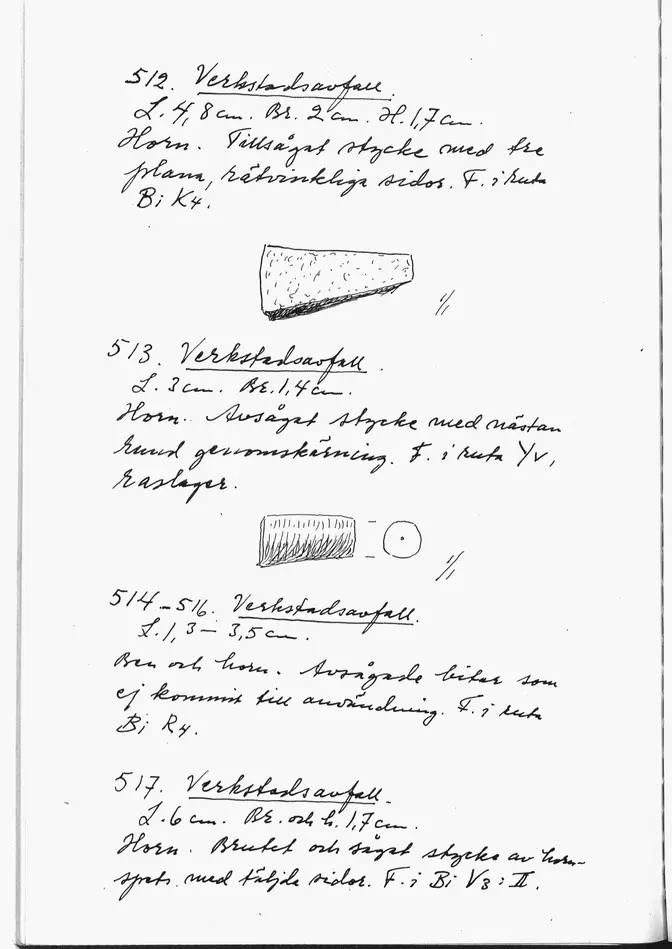 512. Verkstadsavfall.
L. 4,8 cm. Br. 2 cm. H. 1,7 cm.
Horn. Tillsågat stycke med tre
plana, rätvinkliga sidor. F. i ruta
Bi K4.
1/1
513. Verkstadsavfall.
L. 3 cm. Br. 1,4 cm.
Horn. Avsågat stycke med nästan
rund genomskärning. F. i ruta Yv,
raslager.
1/1
514-516. Verkstadsavfall.
L. 1,3 – 3,5 cm.
Ben och horn. Avsågade bitar som
ej kommit till användning. F. i ruta
Bi R4.
517. Verkstadsavfall.
L. 6 cm. Br. och h. 1,7 cm.
Horn. Brutet och sågat stycke av horn-
spets med täljda sidor. F. i Bi V3:II.